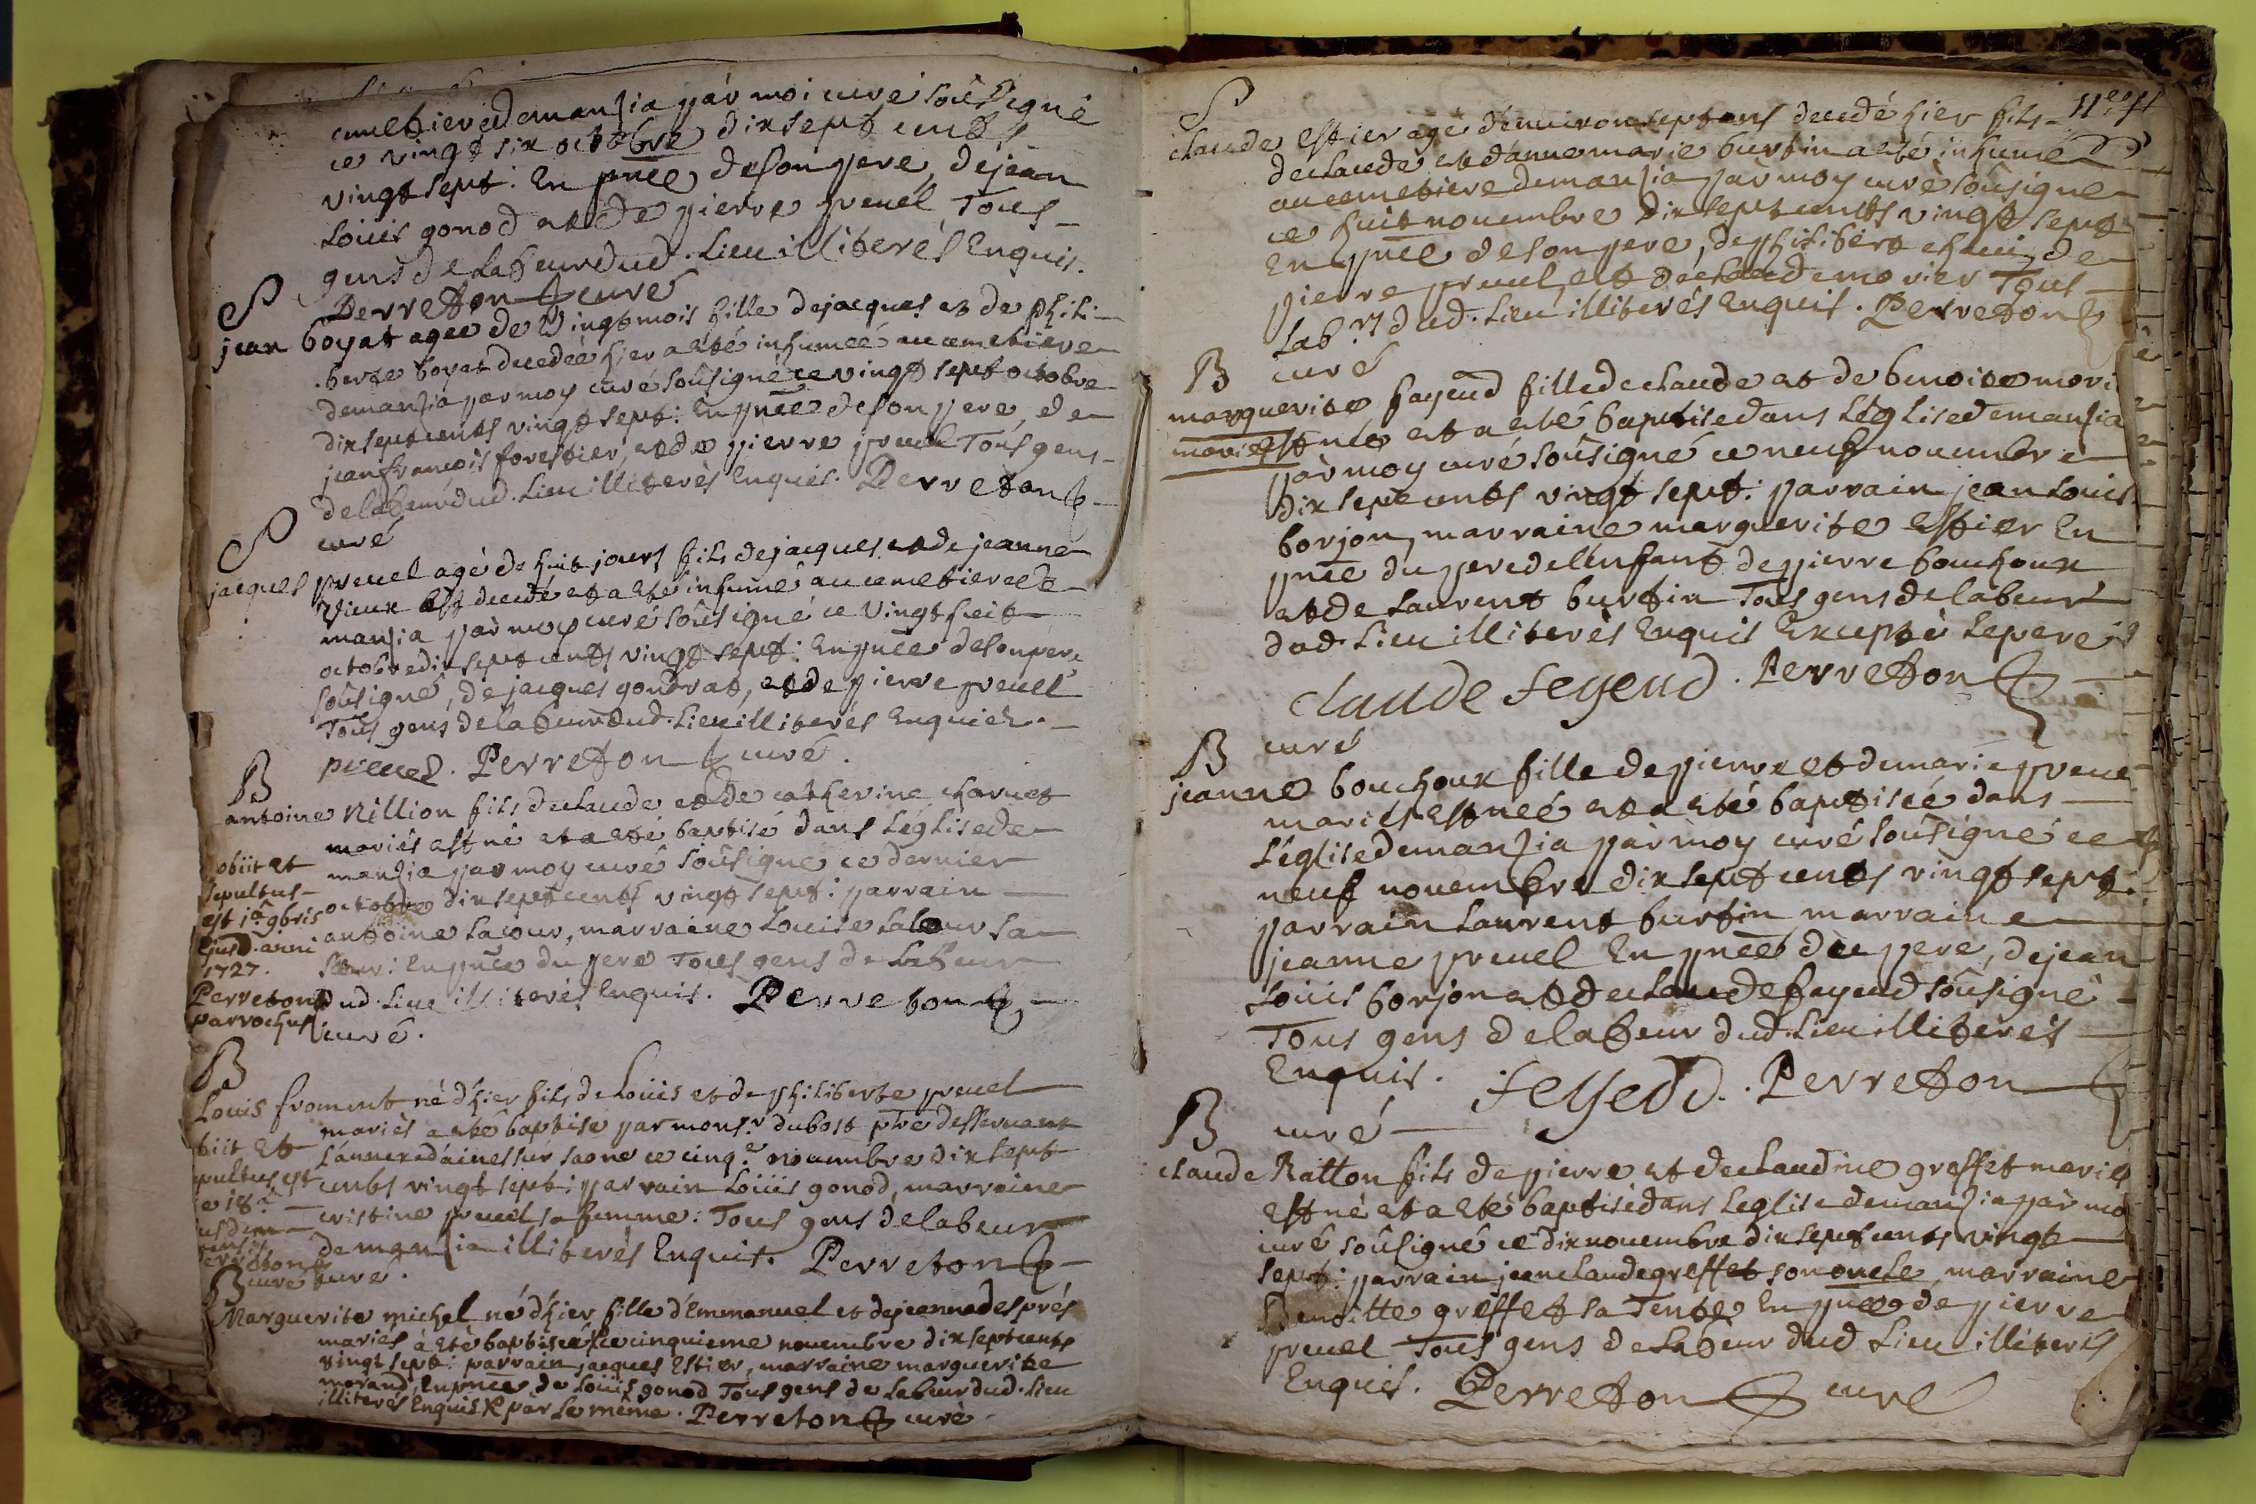 cimetiere de manzia par moi curé soûsigné
ce vingt six octobre dix sept cents
vingt sept: En pnce de son pere, de jean
Loüis gonod et de pierre preuel, Tous
gens de labeur dud. Lieu illiterés Enquis.
Perreton curé
S
jean boyat agée de Vingt mois fille de jacques et de phili-
berte boyat decedée hier a eté inhumée au cimetiere
de manzia par moy curé soûsigné ce vingt sept octobre
dix sept cents vingt sept: En pnce de son pere, de
jean françois forestier, et de pierre preuel Tous gens
de labeur dud. Lieu illiterès Enquis. Perreton
curé
S
jacques preuel agé de huit jours fils de jacques et de jeanne
Vieux Est decedé et a eté inhumé au cimetiere de
manzia par moy curé soûsigné ce Vingt huit
octobre dix sept cents vingt sept: En pnce de son pere
soûsigné, de jacques gondrat, et de pierre preuel
Tous gens de labeur dud. Lieu illiterés Enquis.
preuel. Perreton curé.
B
antoine Nillion fils de claude et de catherine charuet
mariés est né et a eté baptisé dans L'église de
manzia par moy curé soûsigné ce dernier
octobre dix sept cents vingt sept: parrain
antoine Lacour, marraine Louise Lacour sa
sœur: En pnce du pere Tous gens de Labeur
dud. Lieu illiterés Enquis. Perreton
curé.
obiit et
sepultus
est 1a 9bris
Ejusd. anni
1727.
Perreton
parrochus
B
Louis froment né d'hier fils de Loüis et de philiberte preuel
mariés a eté baptisé par monsr. dubost ptre desservant
L'annexe d'aisnes sur saone ce cinqe. nouembre dix sept
cents vingt sept: parrain Loüis gonod, marraine
cristine preuel sa femme: Tous gens de labeur
de manzia illiterés Enquis. Perreton
curé.
biit et
pultus est
e 18e
usdem
mensis
erreton
curé
B
Marguerite michel né d'hier fille d'Emmanuel et de jeanne després
mariés à eté baptisée ce cinquieme nouembre dix sept cents
vingt sept: parrain jacques Estier, marraine marguerite
morand, En pnce de Loüis gonod Tous gens de Labeur dud. Lieu
illiterés Enquis par le même. Perreton curé.
S
claude Estier agé d'enuiron sept ans decedé hier fils
de claude et d'anne marie burtin a eté inhumé
au cemetiere de manzia par moy curé soûsigné
ce huit nouembre dix sept cents vingt sept
En pnce de son pere, de philibert chaui, de
pierre preuel et de claude morier Tous
Labrs dud. Lieu illiterés Enquis. Perreton
curé
B
marguerite fayend fille de claude et de benoite mori
mariés est née et a eté baptisé dans L'église de manzia
par moy curé soûsigné ce neuf nouembre
dix sept cents vingt sept: parrain jean Loüis
borjon, marraine marguerite Estier En
pnce du pere de l'enfant de pierre bouchoux
et de Laurent burtin Tous gens de labeur
dud. Lieu illiterés Enquis Excepté Le pere
claude feyend. Perreton
curé
B
jeanne bouchoux fille de pierre et de marie preuel
mariés Est née et a eté baptisée dans
L'église de manzia par moy curé soûsigné ce
neuf nouembre dix sept cents vingt sept:
parrain Laurent burtin marraine
jeanne preuel En pnce du pere, de jean
Loüis borjon et de claude fayend soûsigné
Tous gens de labeur dud. Lieu illiterés
Enquis. feyend. Perreton
curé
B
claude Ratton fils de pierre et de claudine greffet mariés
Est né et a eté baptisé dans L'eglise de manzia par mo
curé soûsigné ce dix nouembre dix sept cents vingt
sept: parrain jean claude greffet son oncle, marraine
benoitte greffet sa Tente En pnce de pierre
preuel Tous gens de Labeur dud Lieu illiterés
Enquis. Perreton curé